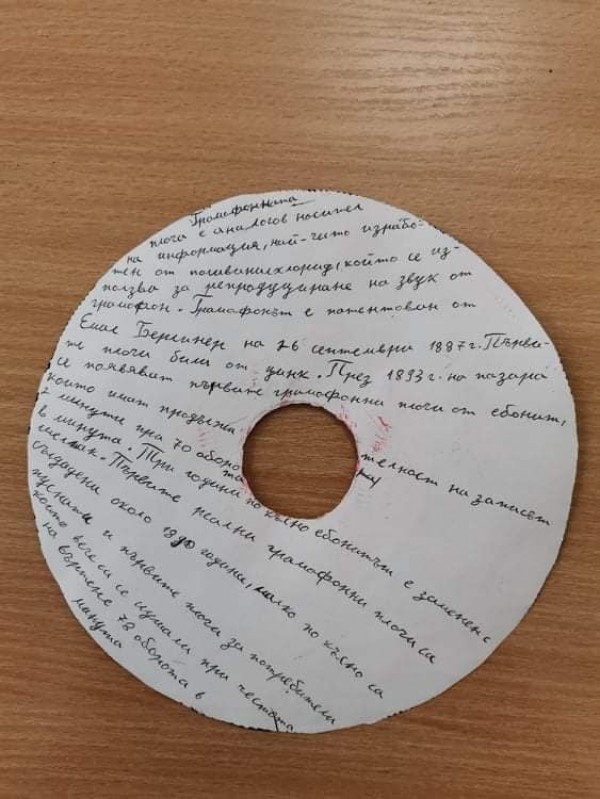 Грамофонната
плоча е аналогов носител
на информация, най-чито израбо-
тен от поливинилхлорид, който се из-
ползва за репродуциране на звук от
грамофон. Грамофонът е патентован от
Емил Берлинер на 26 септември 1887г. Първи-
те плочи били от цинк. През 1893г. на пазара
се появяват първите грамофонни плочи от ебонит,
които имат продължи телност на записът
2 минути при 70 оборо та
в минута. Три години по късно ебонитът е заменен с
шеллак. Първите реални грамофонни плочи са
създадени около 1890 година, малко по късно са
пуснати и първите плочи за потребители
които вече са се слушали при честота
на въртене 78 оборота в
минута